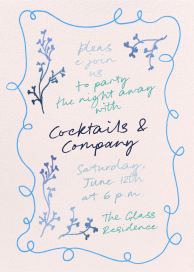 Pleas
e join
us
to party
the night away
with
Cocktails &
Company
Saturday,
June 12th
at 6 p.m.
The Glass
Residence